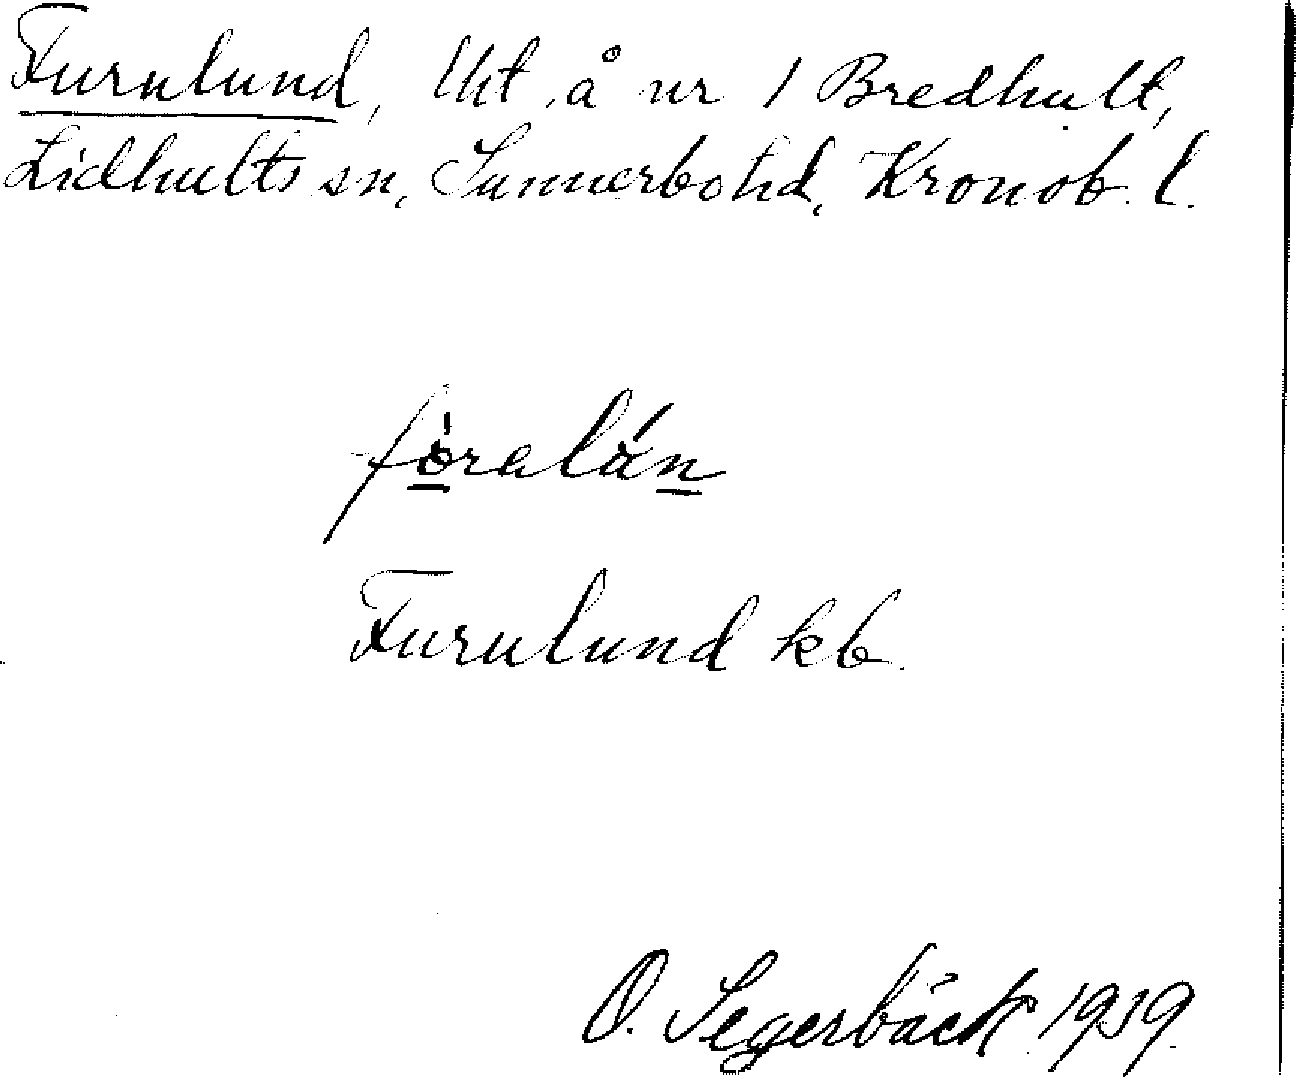 Furulund, Utj. å nr 1 Bredhult,
Lidhults sn, Sunnerbo hd, Kronob. l.
fòralán
Furulund kb.
O. Segerbäck 1939.